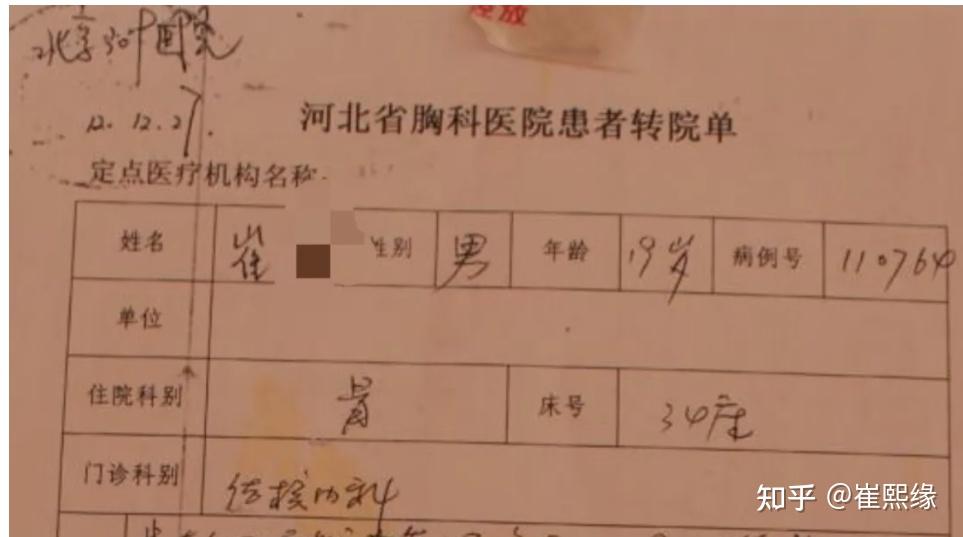 控放
北京309医院
12.12.27.
河北省胸科医院患者转院单
定点医疗机构名称
姓名 崔 性别 男 年龄 19岁 病例号 110764
单位
住院科别 骨 床号 34床
门诊科别 结核内科
知乎 @崔熙缘